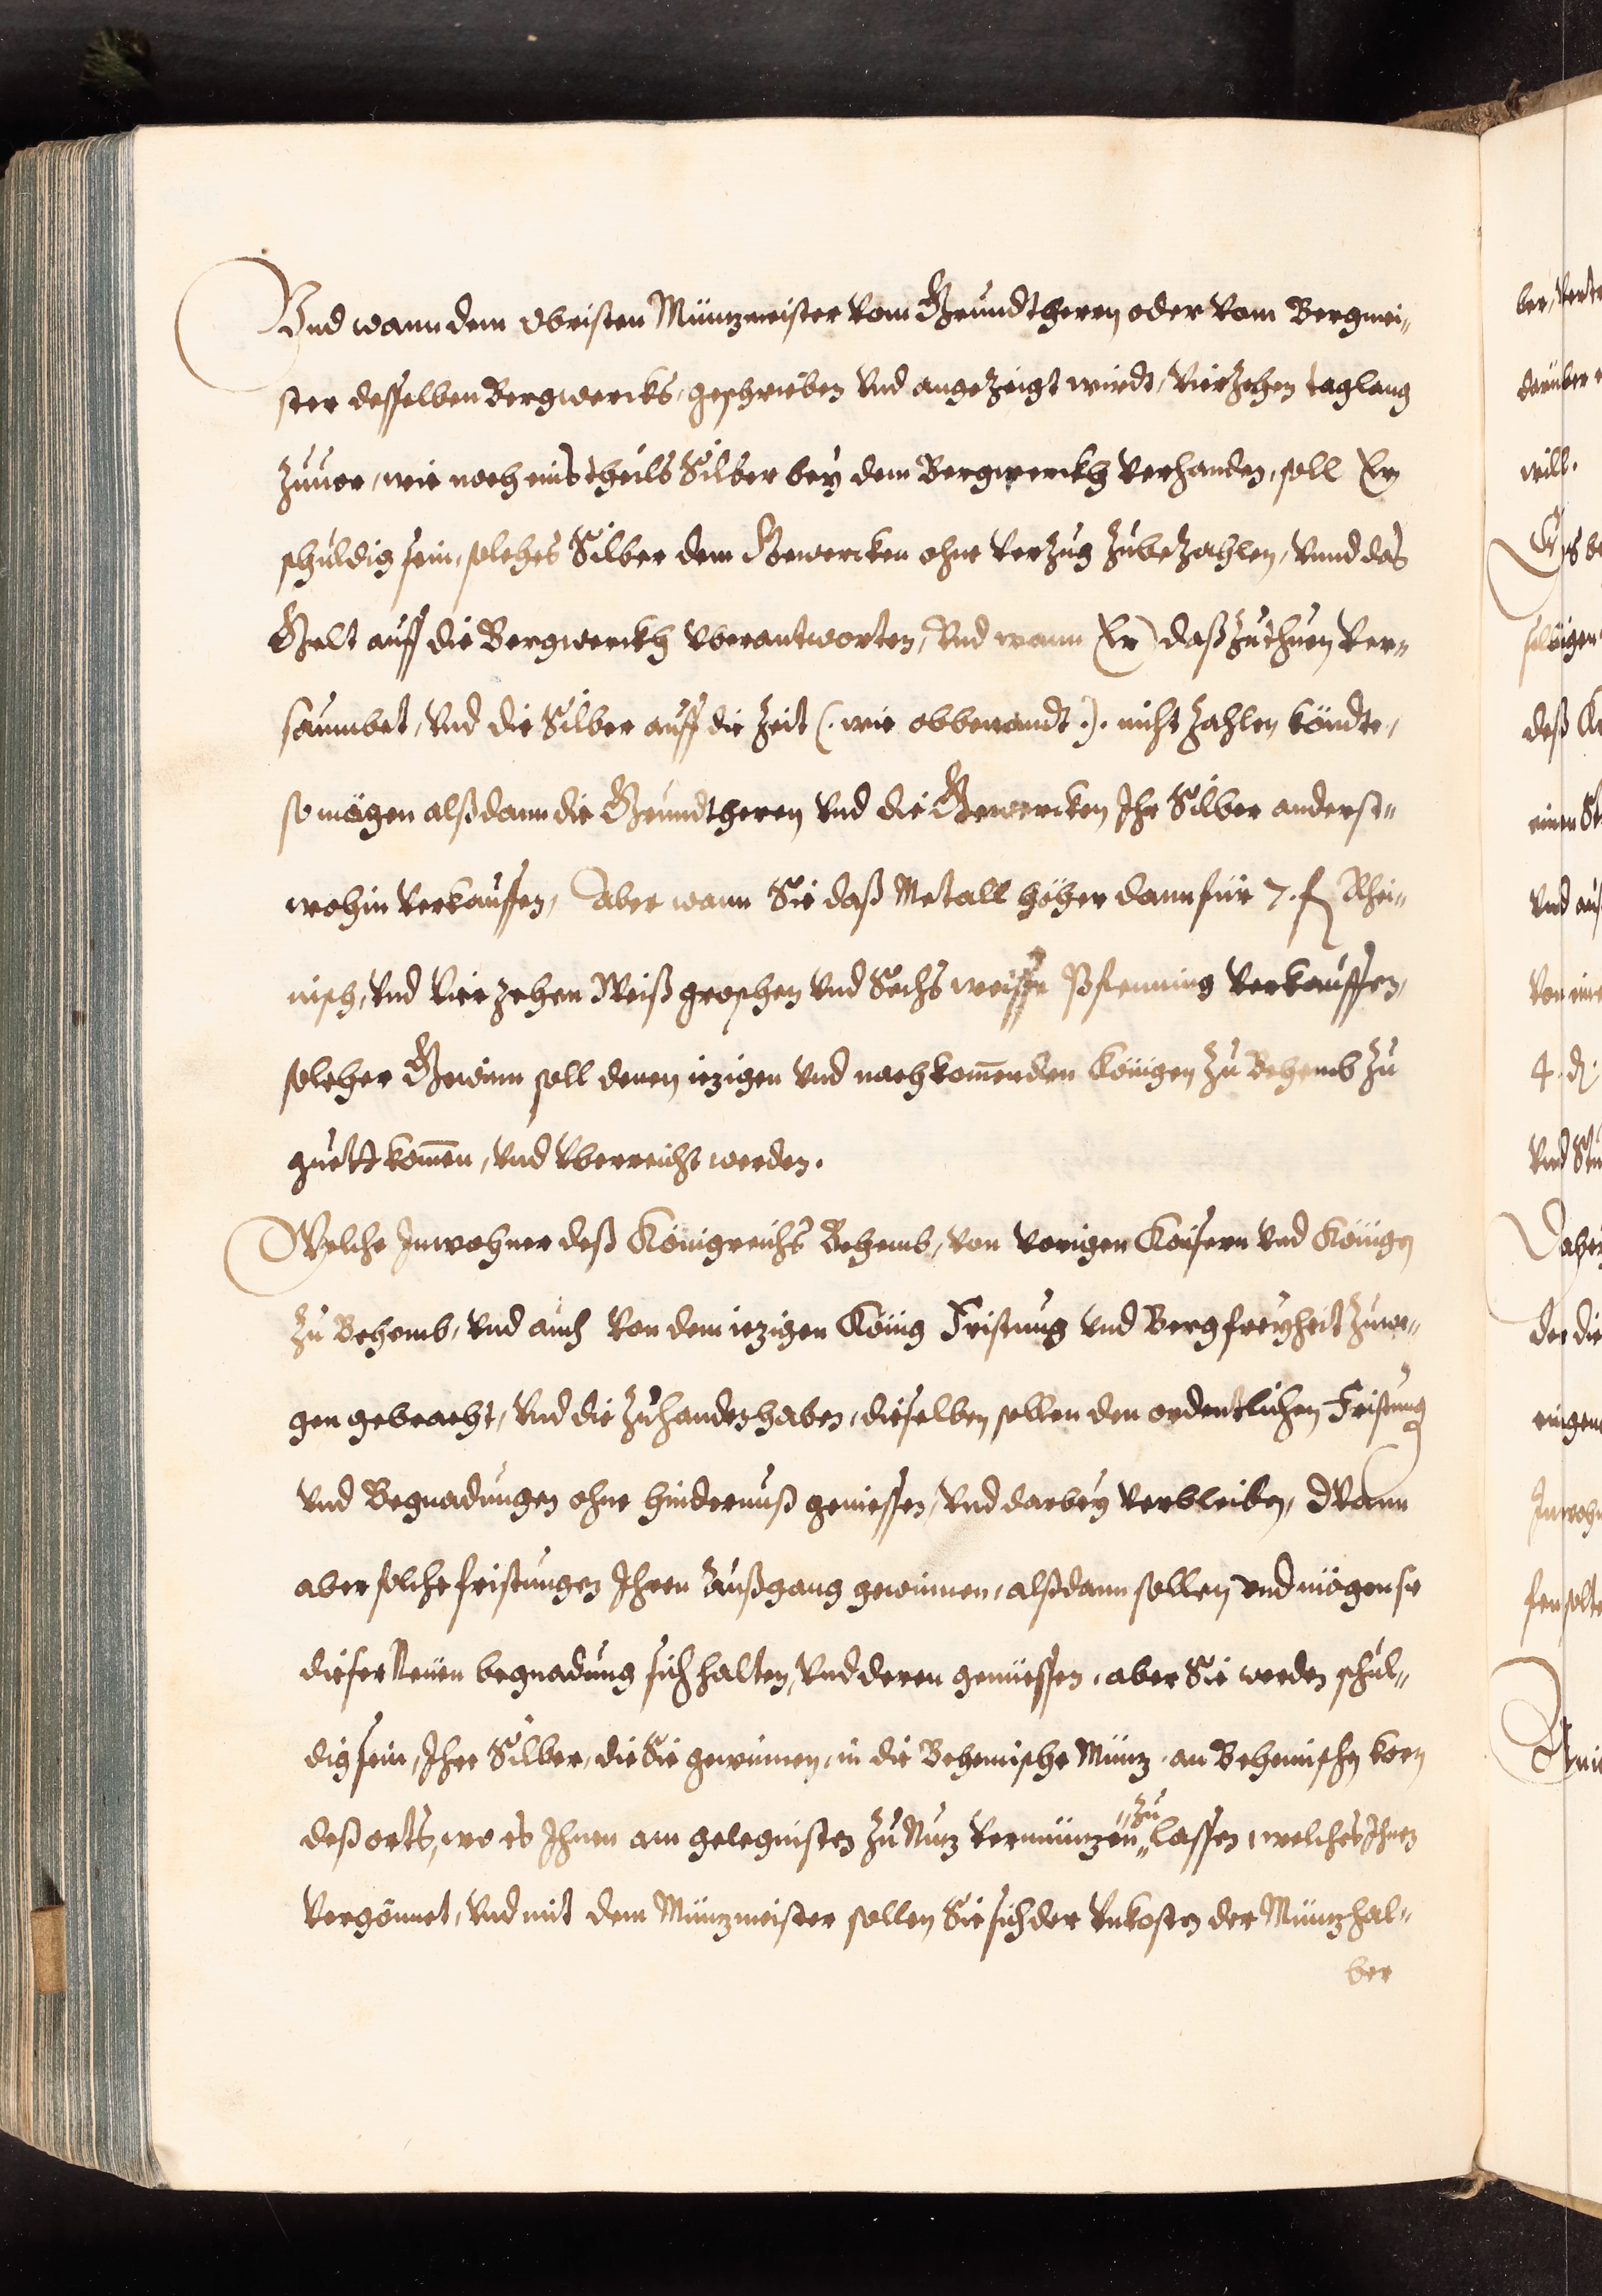 Vnd wann dem Obristen Müntzmeister vom Grundtherrn oder vom Bergmei„
ster desselben Bergwercks, geschrieben vnd angezeigt wirdt, vierzehen taglang
zuuor, wie noch eins theils Silber bey dem Bergwerckh verhanden, soll Er
schuldig sein, solches Silber dem Gewercken ohne verzug zubezahlen, vnnd das
Gelt auff die Bergwerckh vberantworten, Vnd wann Er daß zuthuen ver„
saumbet, vnd die Silber auff die Zeit (. wie obbenandt .). nicht zahlen köndte,
so mögen alßdann die Grundtherrn vnd die Gewercken Ihr Silber anderst„
wohin verkauffen, Aber wann Sie daß Metall höher dann für 7. f Rhei„
nisch, vnd vierzehen Weiß groschen vnd Sechs weisse Pfenning verkauffen,
solcher Gewinn soll denen iezigen vnd nachkom̄enden Königen zu Behemb zu
guett kom̄en, vnd vberreicht werden.
Welche Inwohner deß Königreichs Behemb, von vorigen Kaisern vnd Königen
zu Behemb, vnd auch von dem iezigen König Fristung vnd Bergfreyheit zuwe„
gen gebracht, vnd die zuhanden haben, dieselben sollen den ordentlichen Fristung
vnd Begnadungen ohne hindernuß geniessen, vnd darbey verbleiben, Wann
aber solche fristungen Ihren Außgang gewinnen, alßdann sollen vnd mögen sie
dieser Neuen begnadung sich halten, vnd deren genüessen, aber Sie werden schul„
dig sein, Ihre Silber, die Sie gewinnen, in die Behemische Münz, an Behemischen korn
deß orts, wo es Ihnen am gelegnisten zu Nuz vermünzen „zu„ lassen, welches Ihnen
vergönnet, vnd mit dem Münzmeister sollen Sie sich der vnkosten der Münz hal„
ber